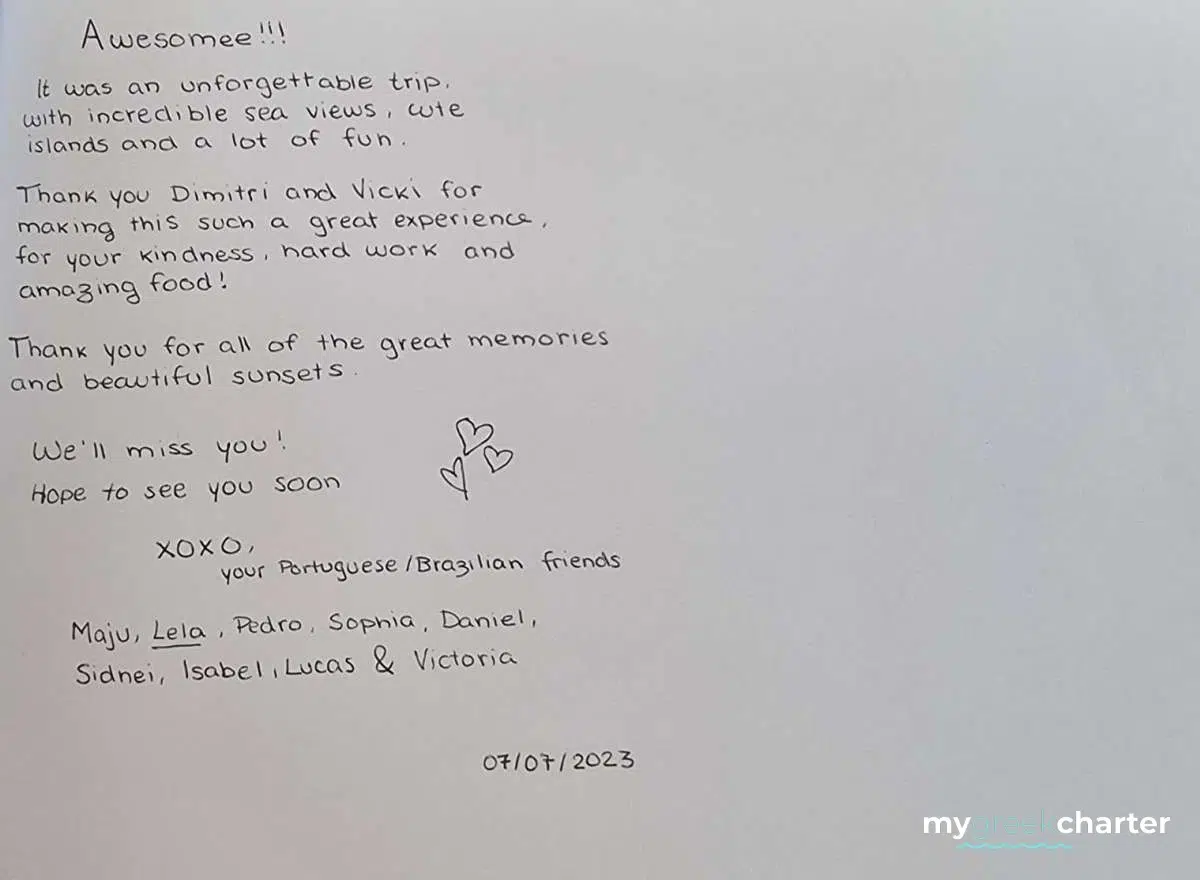 Awesomee!!!
It was an unforgettable trip,
with incredible sea views, cute
islands and a lot of fun.
Thank you Dimitri and Vicki for
making this such a great experience,
for your kindness, hard work and
amazing food!
Thank you for all of the great memories
and beautiful sunsets.
We'll miss you!
Hope to see you soon
XOXO,
your Portuguese/Brazilian friends
Maju, Lela, Pedro, Sophia, Daniel,
Sidnei, Isabel, Lucas & Victoria
07/07/2023
mygreekcharter